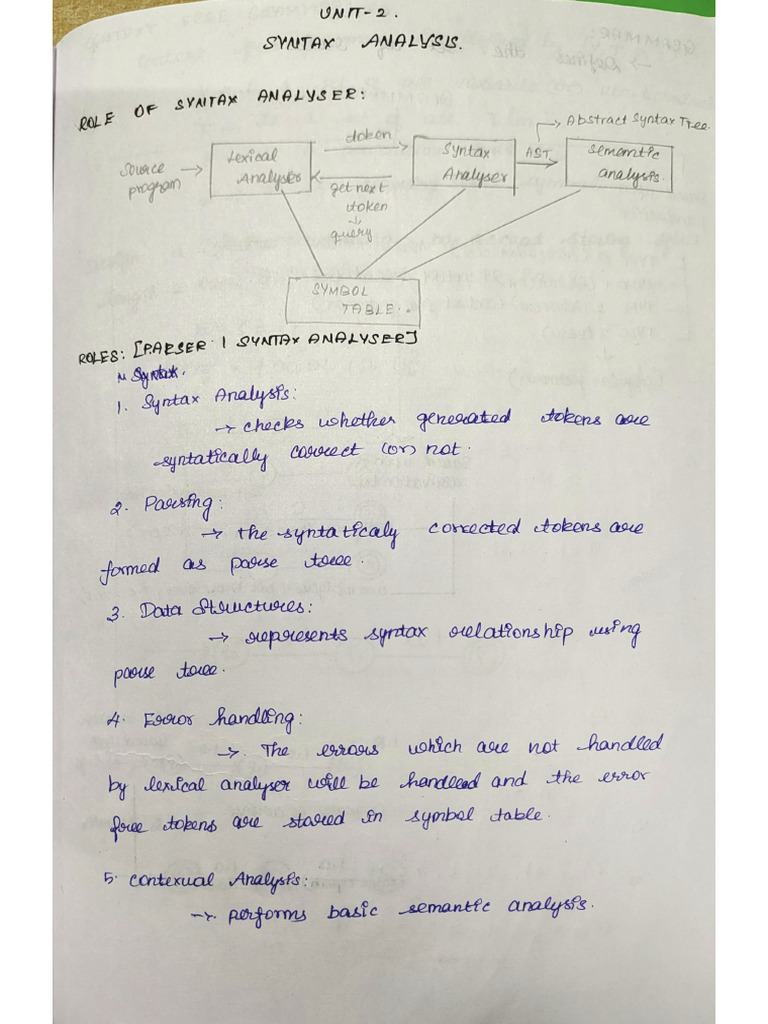 UNIT-2.
SYNTAX ANALYSIS.
ROLE OF SYNTAX ANALYSER:
Source program
Lexical Analyser
token
get next token
query
Syntax Analyser
AST
Abstract Syntax Tree.
sememtic analysis.
SYMBOL TABLE.
ROLES: [PARSER | SYNTAX ANALYSER]
1. Syntax Analysis:
→ checks whether generated tokens are
syntatically correct (or) not.
2. Parsing:
→ the syntaticaly corrected tokens are
formed as parse tree.
3. Data Structures:
→ represents syntax relationship using
parse tree.
4. Error handling:
→ The errors which are not handled
by lexical analyser will be handled and the error
free tokens are stared in symbol table.
5. Contexual Analysis:
→ performs basic semantic analysis.